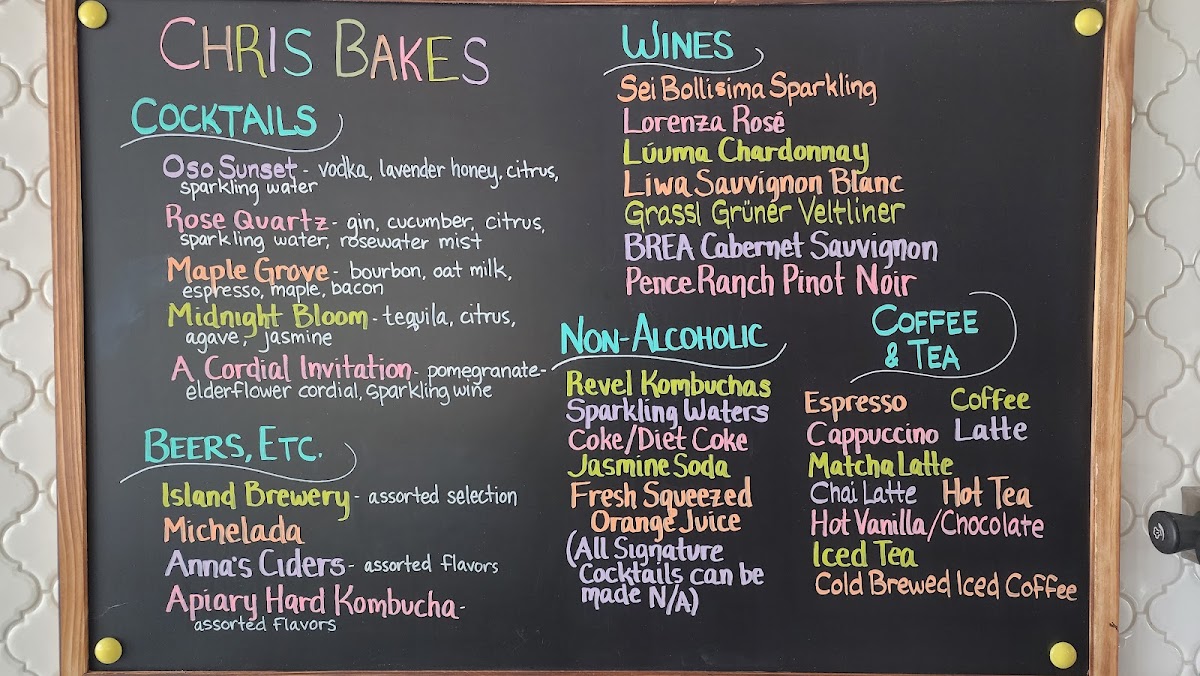 CHRIS BAKES
COCKTAILS
Oso Sunset - vodka, lavender honey, citrus,
sparkling water
Rose Quartz - gin, cucumber, citrus,
sparkling water, rosewater mist
Maple Grove - bourbon, oat milk,
espresso, maple, bacon
Midnight Bloom - tequila, citrus,
agave, jasmine
A Cordial Invitation - pomegranate-
elderflower cordial, sparkling wine
BEERS, ETC.
Island Brewery - assorted selection
Michelada
Anna's Ciders - assorted flavors
Apiary Hard Kombucha -
assorted flavors
WINES
Sei Bollisima Sparkling
Lorenza Rosé
Lúuma Chardonnay
Liwa Sauvignon Blanc
Grassl Grüner Veltliner
BREA Cabernet Sauvignon
Pence Ranch Pinot Noir
NON-ALCOHOLIC
Revel Kombuchas
Sparkling Waters
Coke/Diet Coke
Jasmine Soda
Fresh Squeezed
Orange Juice
(All Signature
Cocktails can be
made N/A)
COFFEE
& TEA
Espresso Coffee
Cappuccino Latte
Matcha Latte
Chai Latte Hot Tea
Hot Vanilla/Chocolate
Iced Tea
Cold Brewed Iced Coffee